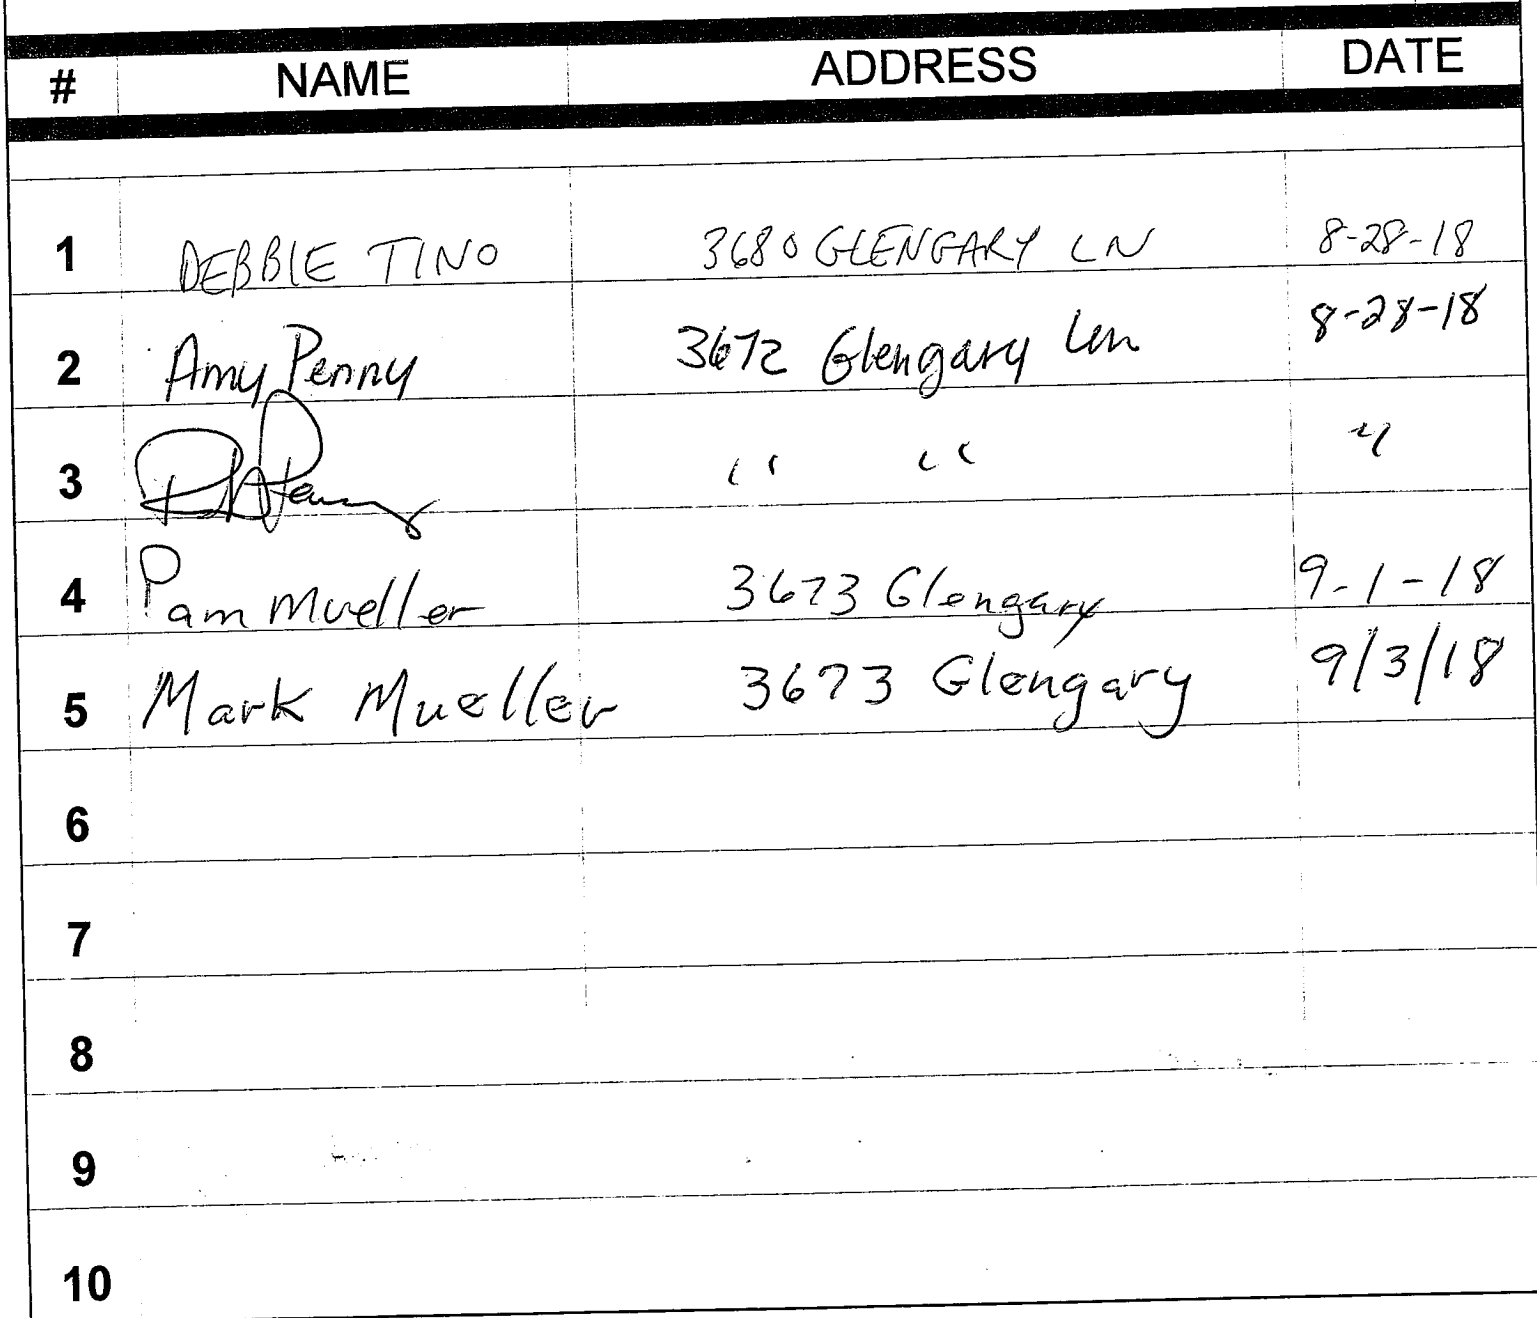 # NAME ADDRESS DATE
1 DEBBIE TINO 3680 GLENGARY LN 8-28-18
2 Amy Penny 3672 Glengary Ln 8-28-18
3 Penny " " "
4 Pam Mueller 3673 Glengary 9-1-18
5 Mark Mueller 3673 Glengary 9/3/18
6
7
8
9
10